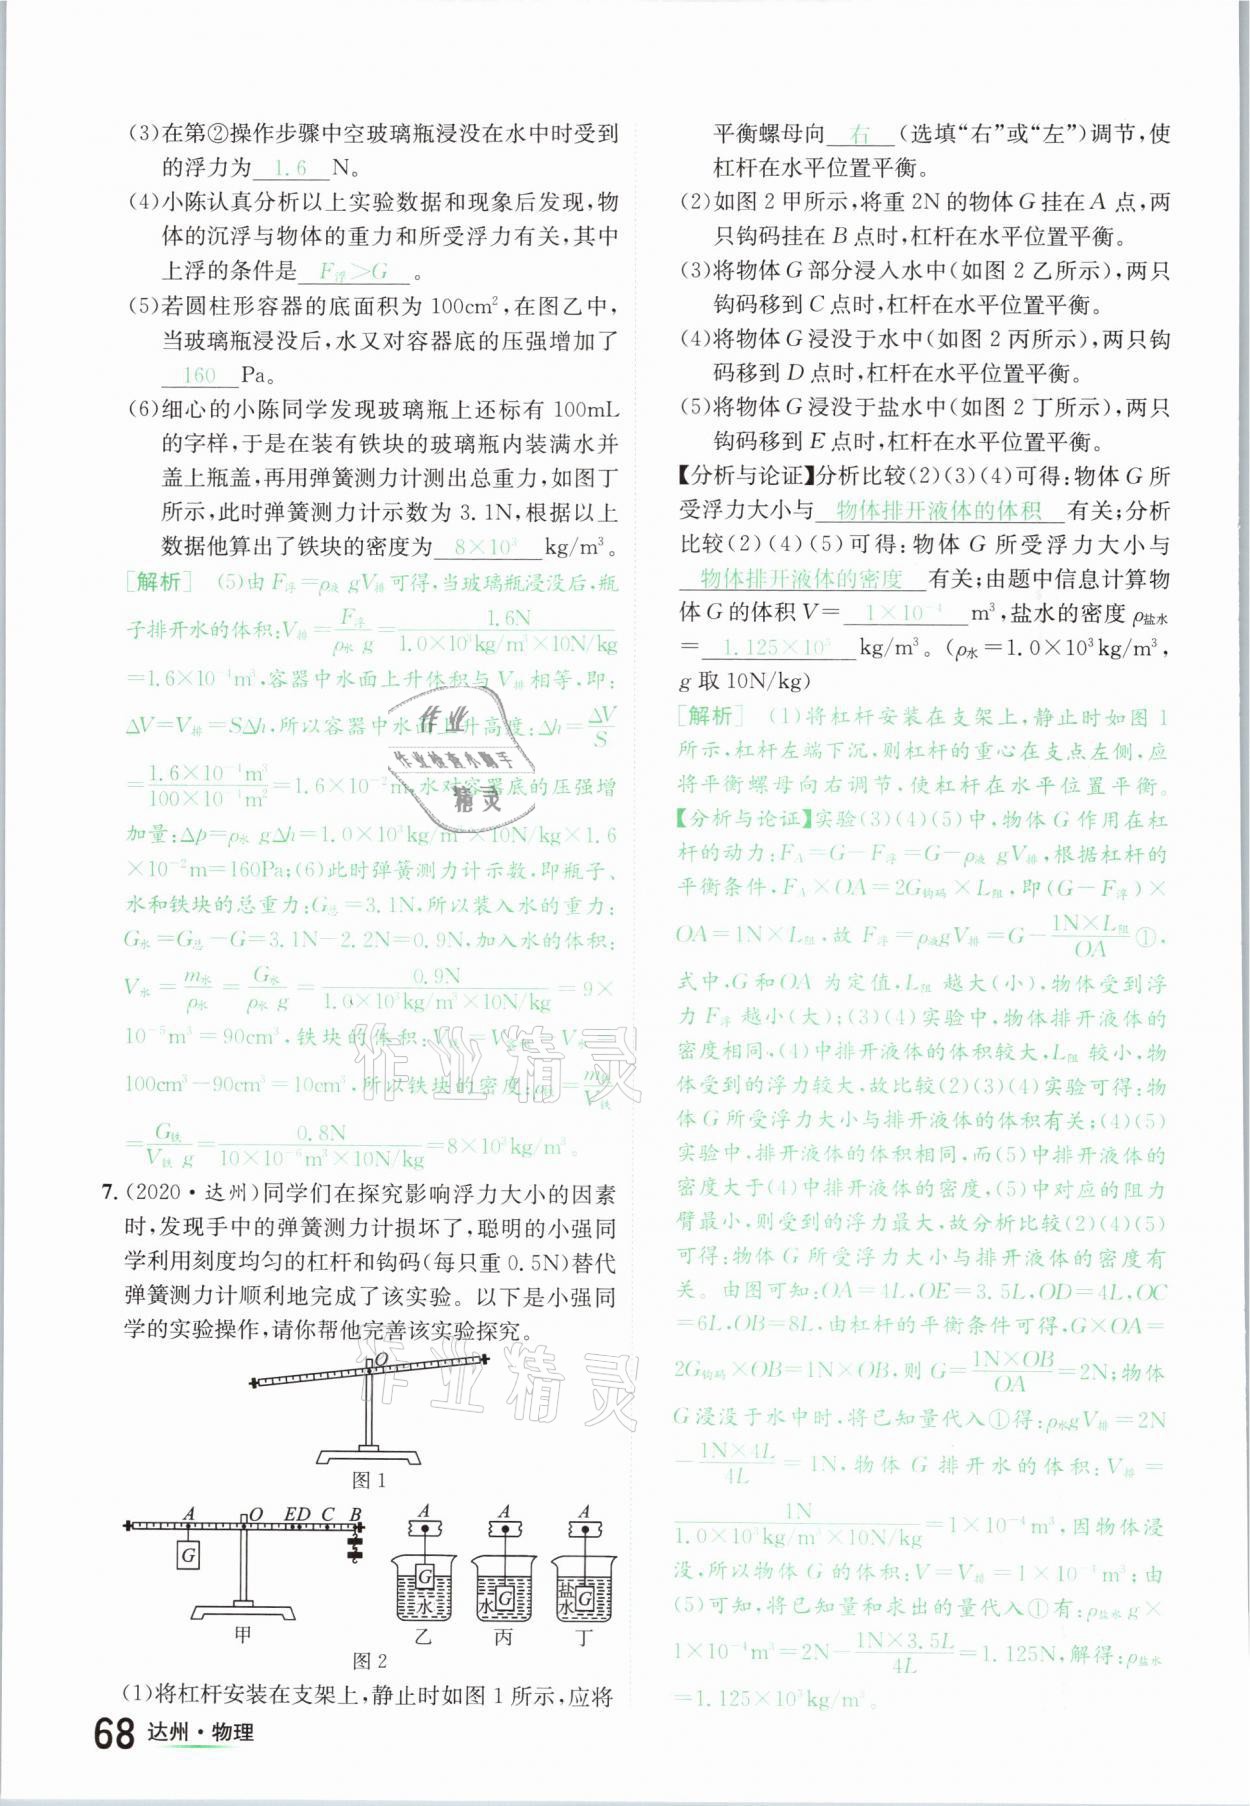 (3)在第②操作步骤中空玻璃瓶浸没在水中时受到
的浮力为 1.6 N。
(4)小陈认真分析以上实验数据和现象后发现,物
体的沉浮与物体的重力和所受浮力有关,其中
上浮的条件是 F浮＞G 。
(5)若圆柱形容器的底面积为 100cm²,在图乙中,
当玻璃瓶浸没后,水又对容器底的压强增加了
160 Pa。
(6)细心的小陈同学发现玻璃瓶上还标有 100mL
的字样,于是在装有铁块的玻璃瓶内装满水并
盖上瓶盖,再用弹簧测力计测出总重力,如图丁
所示,此时弹簧测力计示数为 3.1N,根据以上
数据他算出了铁块的密度为 8×10³ kg/m³。
[解析] (5)由 F浮=ρ液 gV排可得,当玻璃瓶浸没后,瓶
子排开水的体积:V排=F浮/ρ水 g=1.6N/1.0×10³kg/m³×10N/kg
=1.6×10⁻⁴m³,容器中水面上升体积与 V排相等,即:
ΔV=V排=SΔh,所以容器中水面上升高度:Δh=ΔV/S
=1.6×10⁻⁴m³/100×10⁻⁴m²=1.6×10⁻²m,水对容器底的压强增
加量:Δp=ρ水 gΔh=1.0×10³kg/m³×10N/kg×1.6
×10⁻²m=160Pa;(6)此时弹簧测力计示数,即瓶子、
水和铁块的总重力:G总=3.1N,所以装入水的重力:
G水=G总-G=3.1N-2.2N=0.9N,加入水的体积:
V水=m水/ρ水=G水/ρ水 g=0.9N/1.0×10³kg/m³×10N/kg=9×
10⁻⁵m³=90cm³,铁块的体积:V铁=V空瓶-V水=
100cm³-90cm³=10cm³,所以铁块的密度:ρ铁=m铁/V铁
=G铁/V铁 g=0.8N/10×10⁻⁶m³×10N/kg=8×10³kg/m³。
7. (2020·达州)同学们在探究影响浮力大小的因素
时,发现手中的弹簧测力计损坏了,聪明的小强同
学利用刻度均匀的杠杆和钩码(每只重 0.5N)替代
弹簧测力计顺利地完成了该实验。以下是小强同
学的实验操作,请你帮他完善该实验探究。
O
图 1
A O ED C B
G
甲
A
G
水
乙
A
水 G
丙
A
盐水 G
丁
图 2
(1)将杠杆安装在支架上,静止时如图 1 所示,应将
68 达州·物理
平衡螺母向 右 (选填“右”或“左”)调节,使
杠杆在水平位置平衡。
(2)如图 2 甲所示,将重 2N 的物体 G 挂在 A 点,两
只钩码挂在 B 点时,杠杆在水平位置平衡。
(3)将物体 G 部分浸入水中(如图 2 乙所示),两只
钩码移到 C 点时,杠杆在水平位置平衡。
(4)将物体 G 浸没于水中(如图 2 丙所示),两只钩
码移到 D 点时,杠杆在水平位置平衡。
(5)将物体 G 浸没于盐水中(如图 2 丁所示),两只
钩码移到 E 点时,杠杆在水平位置平衡。
【分析与论证】分析比较(2)(3)(4)可得:物体 G 所
受浮力大小与 物体排开液体的体积 有关;分析
比较(2)(4)(5)可得:物体 G 所受浮力大小与
物体排开液体的密度 有关;由题中信息计算物
体 G 的体积 V= 1×10⁻⁴ m³,盐水的密度 ρ盐水
= 1.125×10³ kg/m³。(ρ水=1.0×10³kg/m³,
g 取 10N/kg)
[解析] (1)将杠杆安装在支架上,静止时如图 1
所示,杠杆左端下沉,则杠杆的重心在支点左侧,应
将平衡螺母向右调节,使杠杆在水平位置平衡。
【分析与论证】实验(3)(4)(5)中,物体 G 作用在杠
杆的动力:FA=G-F浮=G-ρ液 gV排,根据杠杆的
平衡条件,FA×OA=2G钩码×L阻,即(G-F浮)×
OA=1N×L阻,故 F浮=ρ液gV排=G-1N×L阻/OA①,
式中,G 和 OA 为定值,L阻 越大(小),物体受到浮
力 F浮 越小(大);(3)(4)实验中,物体排开液体的
密度相同,(4)中排开液体的体积较大,L阻 较小,物
体受到的浮力较大,故比较(2)(3)(4)实验可得:物
体 G 所受浮力大小与排开液体的体积有关;(4)(5)
实验中,排开液体的体积相同,而(5)中排开液体的
密度大于(4)中排开液体的密度,(5)中对应的阻力
臂最小,则受到的浮力最大,故分析比较(2)(4)(5)
可得:物体 G 所受浮力大小与排开液体的密度有
关。由图可知:OA=4L,OE=3.5L,OD=4L,OC
=6L,OB=8L,由杠杆的平衡条件可得,G×OA=
2G钩码×OB=1N×OB,则 G=1N×OB/OA=2N;物体
G 浸没于水中时,将已知量代入①得:ρ水gV排=2N
-1N×4L/4L=1N,物体 G 排开水的体积:V排=
1N/1.0×10³kg/m³×10N/kg=1×10⁻⁴m³,因物体浸
没,所以物体 G 的体积:V=V排=1×10⁻⁴m³;由
(5)可知,将已知量和求出的量代入①有:ρ盐水 g×
1×10⁻⁴m³=2N-1N×3.5L/4L=1.125N,解得:ρ盐水
=1.125×10³kg/m³。
作业
作业检查小助手
精灵
作业精灵
作业精灵